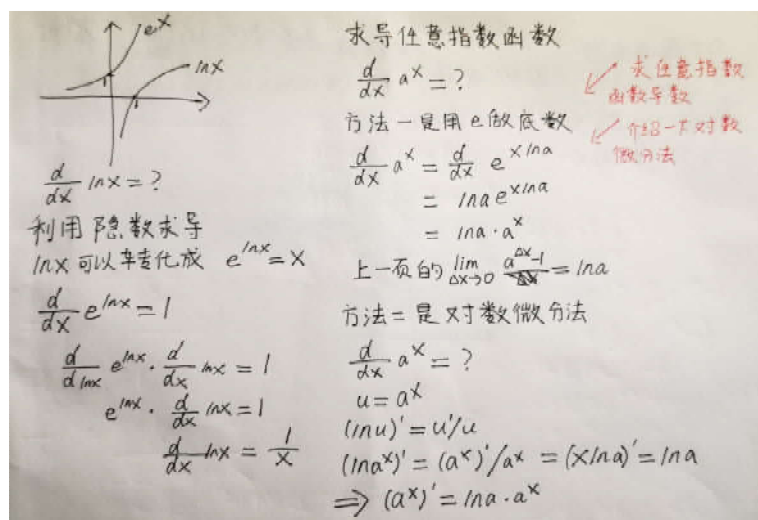 e^x
lnx
1
1
d/dx lnx = ?
利用隐数求导
lnx可以转化成 e^lnx = x
d/dx e^lnx = 1
d/dlnx e^lnx · d/dx lnx = 1
e^lnx · d/dx lnx = 1
d/dx lnx = 1/x
求导任意指数函数
d/dx a^x = ?
方法一是用e做底数
d/dx a^x = d/dx e^xlna
= lna e^xlna
= lna · a^x
上一页的 lim Δx→0 (a^Δx - 1)/Δx = lna
方法二是对数微分法
d/dx a^x = ?
u = a^x
(lnu)' = u'/u
(lna^x)' = (a^x)'/a^x = (xlna)' = lna
⇒ (a^x)' = lna · a^x
求任意指数
函数导数
介绍一下对数
微分法